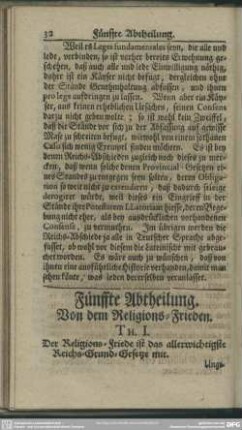 32 Fünffte Abtheilung.
Weil es Leges fundamentales seyn, die alle und
jede, verbinden, so ist vorher bereits Erwehnung ge-
schehen, daß auch alle und jede Einwilligung nöthig,
daher ist ein Käyser nicht befugt, dergleichen ohne
der Stände Genehmhaltung abfassen, und ihnen
pro lege aufdringen zu lassen. Wenn aber ein Käy-
ser, aus keinen erheblichen Ursachen, seinen Consens
darzu nicht geben wolte; so ist wohl kein Zweiffel,
daß die Stände vor sich zu der Abfassung auf gewisse
Mase zu schreiten befugt, wiewohl von einem solchen
Casu sich wenig Exempel finden möchten. Es ist bey
denen Reichs-Abschieden zugleich noch dieses zu mer-
cken, daß wenn solche denen Provincial-Gesetzen ei-
nes Standes zu entgegen seyn solten, deren Obliga-
tion so weit nicht zu extendiren, daß dadurch selbige
derogiret würde, weil dieses ein Eingriff in der
Stände ihre Land-Hoheit hiesse, deren Bege-
bung nicht eher, als bey ausdrücklichen vorhandenen
Consens, zu vermuthen. Im übrigen werden die
Reichs-Abschiede ja alle in Teutscher Sprache abge-
fasset, ob wohl vor diesem die Lateinische mit gebrau-
chet worden. Es wäre auch zu wünschen, daß von
ihnen eine ausführliche historie vorhanden, damit man
sehen könte, was ieden derselben veranlasset.
Fünffte Abtheilung.
Von dem Religions-Frieden.
TH. I.
Der Religions-Friede ist das allerwichtigste
Reichs-Grund-Gesetze mit.
Unge-